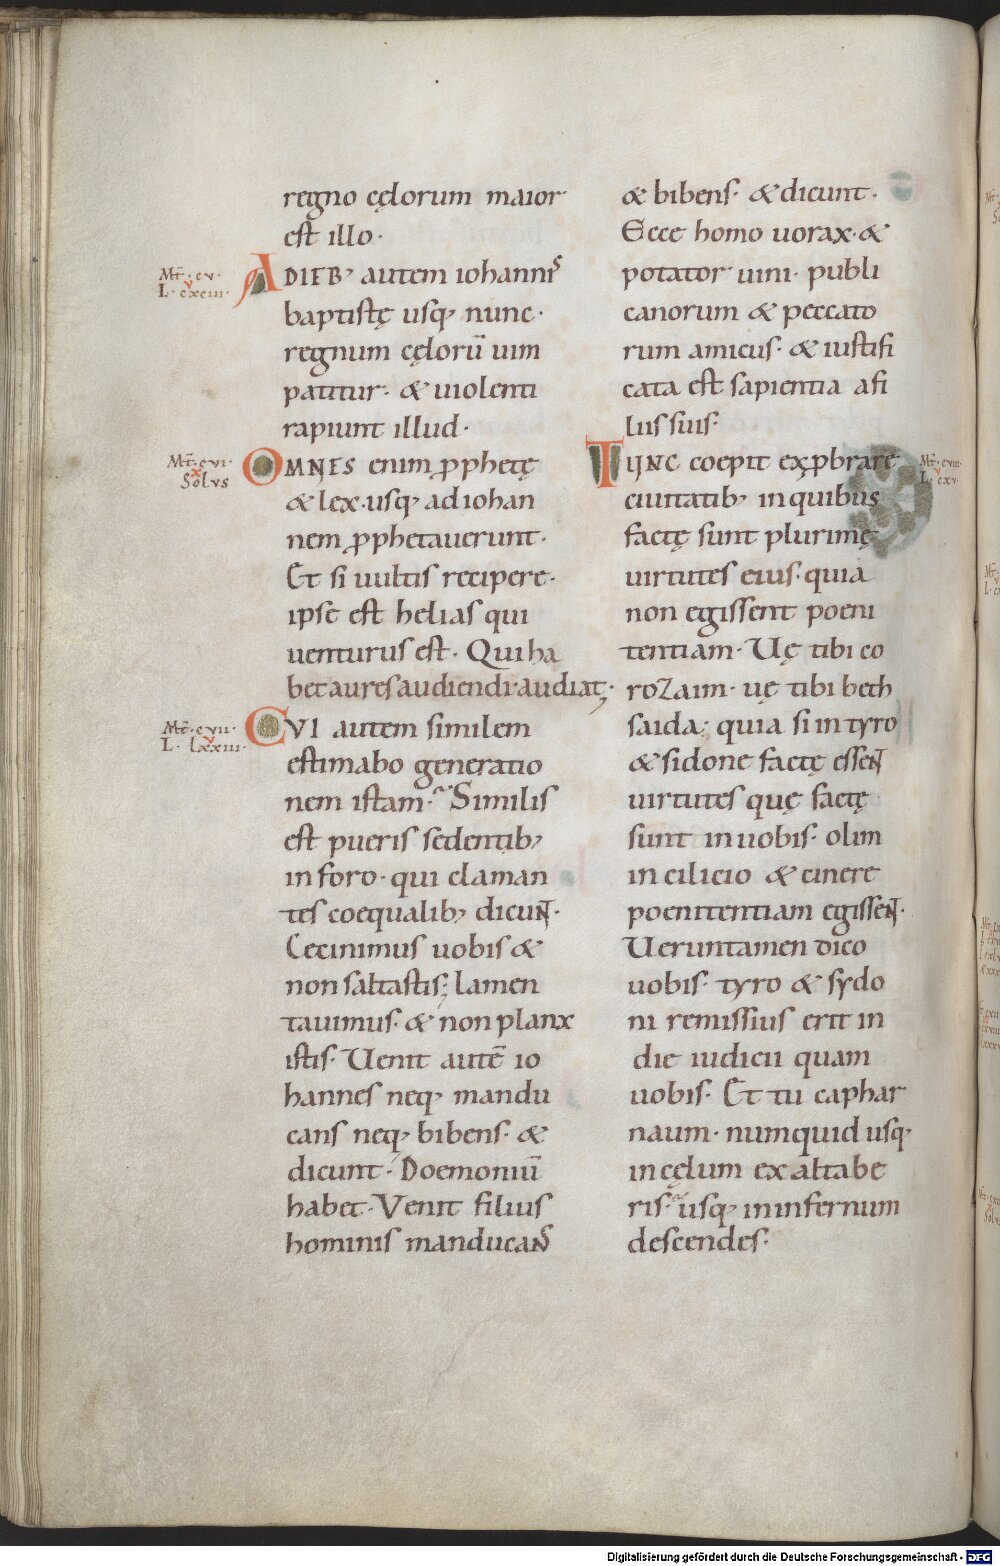 regno cęlorum maior
est illo·
Mt̄·cv·
L·cxciii·
v
ADIEB; autem iohannis
baptistę usq; nunc·
regnum cęlorū uim
patitur· & uiolenti
rapiunt illud·
Mt̄·cvi·
x
Solvs
OMNES enim ꝓphetę
& lex·usq; ad iohan
nem ꝓphetauerunt·
Et si uultis recipere·
ipse est helias qui
uenturus est· Qui ha
bet aures audiendi·audiat;
Mt̄·cvii·
v
L·lxxiii·
CVI autem similem
estimabo generatio
nem istam· Similis
est pueris sedentib;
in foro· qui claman
tes coequalib; dicunt·
Cecinimus uobis &
non saltastis; lamen
tauimus· & non planx
istis· Uenit autē io
hannes neq; mandu
cans neq; bibens· &
dicunt· Doemoniū
habet· Venit filius
hominis manducans
& bibens· & dicunt·
Ecce homo uorax·&
potator uini· publi
canorum & peccato
rum amicus· & iustifi
cata est sapientia a fi
liis suis·
TUNC coepit exꝓbrare
Mt̄·cviii·
v
L·cxv·
ciuitatib; in quibus
factę sunt plurimę
uirtutes eius· quia
non egissent poeni
tentiam· Uę tibi co
rozaim· uę tibi beth
saida; quia si in tyro
& sidone factę essent
uirtutes quę factę
sunt in uobis· olim
in cilicio & cinere
poenitentiam egissent·
Ueruntamen dico
uobis· tyro & sydo
ni remissius erit in
die iudicii quam
uobis· Et tu caphar
naum· numquid usq;
in cęlum exaltabe
ris· usq; in infernum
descendes·
Digitalisierung gefördert durch die Deutsche Forschungsgemeinschaft - DFG